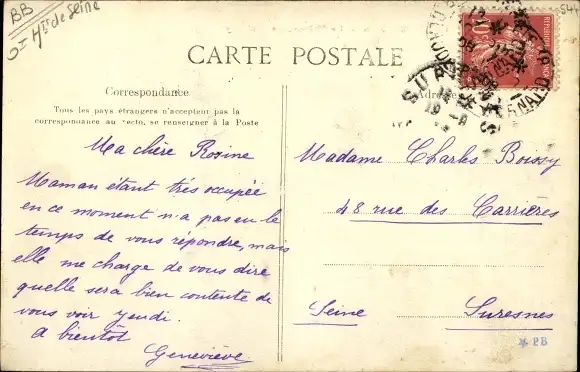 BB
Hts de Seine
541
CARTE POSTALE
Correspondance
Tous les pays étrangers n'acceptent pas la
correspondance au recto, se renseigner à la Poste
Ma chère Rosine
Maman étant très occupée
en ce moment n'a pas eu le
temps de vous répondre, mais
elle me charge de vous dire
quelle sera bien contente de
vous voir jeudi.
a bientôt
Geneviève
Madame Charles Boissy
48 rue des Carrières
Seine Suresnes
PB